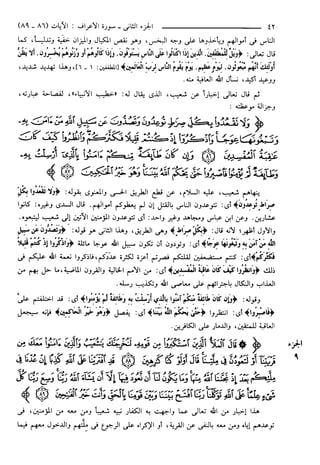 ٤٢ الجزء الثاني - سورة الأعراف: الآيات (٨٦ - ٨٩)
الناس في أموالهم ويأخذوها على وجه البخس، وهو نقص المكيال والميزان خفية وتدليساً، كما
قال تعالى: ﴿وَيْلٌ لِّلْمُطَفِّفِينَ. الَّذِينَ إِذَا اكْتَالُوا عَلَى النَّاسِ يَسْتَوْفُونَ. وَإِذَا كَالُوهُمْ أَو وَّزَنُوهُمْ يُخْسِرُونَ. أَلَا يَظُنُّ
أُولَٰئِكَ أَنَّهُم مَّبْعُوثُونَ. لِيَوْمٍ عَظِيمٍ. يَوْمَ يَقُومُ النَّاسُ لِرَبِّ الْعَالَمِينَ﴾ [المطففين: ١ - ٦]، وهذا تهديد شديد،
ووعيد أكيد، نسأل الله العافية منه.
ثم قال تعالى إخباراً عن شعيب، الذي يقال له: «خطيب الأنبياء»، لفصاحة عبارته،
وجزالة موعظته:
وَلَا تَقْعُدُوا بِكُلِّ صِرَاطٍ تُوعِدُونَ وَتَصُدُّونَ عَن سَبِيلِ اللَّهِ مَنْ آمَنَ بِهِ
وَتَبْغُونَهَا عِوَجًا وَاذْكُرُوا إِذْ كُنتُمْ قَلِيلًا فَكَثَّرَكُمْ وَانظُرُوا كَيْفَ كَانَ
عَاقِبَةُ الْمُفْسِدِينَ ﴿٨٦﴾ وَإِن كَانَ طَائِفَةٌ مِّنكُمْ آمَنُوا بِالَّذِي أُرْسِلْتُ بِهِ وَطَائِفَةٌ
لَّمْ يُؤْمِنُوا فَاصْبِرُوا حَتَّىٰ يَحْكُمَ اللَّهُ بَيْنَنَا وَهُوَ خَيْرُ الْحَاكِمِينَ ﴿٨٧﴾
ينهاهم شعيب، عليه السلام، عن قطع الطريق الحسي والمعنوي بقوله: ﴿وَلَا تَقْعُدُوا بِكُلِّ
صِرَاطٍ تُوعِدُونَ﴾ أي: تتوعدون الناس بالقتل إن لم يعطوكم أموالهم. قال السدي وغيره: كانوا
عشارين. وعن ابن عباس ومجاهد وغير واحد: أي تتوعدون المؤمنين الآتين إلى شعيب ليتبعوه.
والأول أظهر؛ لأنه قال: ﴿بِكُلِّ صِرَاطٍ﴾ وهي الطريق، وهذا الثاني هو قوله: ﴿وَتَصُدُّونَ عَن سَبِيلِ
اللَّهِ مَنْ آمَنَ بِهِ وَتَبْغُونَهَا عِوَجًا﴾ أي: وتودون أن تكون سبيل الله عوجا مائلة ﴿وَاذْكُرُوا إِذْ كُنتُمْ قَلِيلًا
فَكَثَّرَكُمْ﴾ أي: كنتم مستضعفين لقلتكم فصرتم أعزة لكثرة عددكم، فاذكروا نعمة الله عليكم في
ذلك ﴿وَانظُرُوا كَيْفَ كَانَ عَاقِبَةُ الْمُفْسِدِينَ﴾ أي: من الأمم الخالية والقرون الماضية، ما حل بهم من
العذاب والنكال باجترائهم على معاصي الله وتكذيب رسله.
وقوله: ﴿وَإِن كَانَ طَائِفَةٌ مِّنكُمْ آمَنُوا بِالَّذِي أُرْسِلْتُ بِهِ وَطَائِفَةٌ لَّمْ يُؤْمِنُوا﴾ أي: قد اختلفتم علي
﴿فَاصْبِرُوا﴾ أي: انتظروا ﴿حَتَّىٰ يَحْكُمَ اللَّهُ بَيْنَنَا﴾ أي: يفصل ﴿وَهُوَ خَيْرُ الْحَاكِمِينَ﴾ فإنه سيجعل
العاقبة للمتقين، والدمار على الكافرين.
الجزء
٩
قَالَ الْمَلَأُ الَّذِينَ اسْتَكْبَرُوا مِن قَوْمِهِ لَنُخْرِجَنَّكَ يَا شُعَيْبُ وَالَّذِينَ آمَنُوا مَعَكَ مِن
قَرْيَتِنَا أَوْ لَتَعُودُنَّ فِي مِلَّتِنَا قَالَ أَوَلَوْ كُنَّا كَارِهِينَ ﴿٨٨﴾ قَدِ افْتَرَيْنَا عَلَى اللَّهِ كَذِبًا إِنْ عُدْنَا فِي
مِلَّتِكُم بَعْدَ إِذْ نَجَّانَا اللَّهُ مِنْهَا وَمَا يَكُونُ لَنَا أَن نَّعُودَ فِيهَا إِلَّا أَن يَشَاءَ اللَّهُ رَبُّنَا وَسِعَ رَبُّنَا كُلَّ
شَيْءٍ عِلْمًا عَلَى اللَّهِ تَوَكَّلْنَا رَبَّنَا افْتَحْ بَيْنَنَا وَبَيْنَ قَوْمِنَا بِالْحَقِّ وَأَنتَ خَيْرُ الْفَاتِحِينَ ﴿٨٩﴾
هذا إخبار من الله تعالى عما واجهت به الكفار نبيه شعيباً ومن معه من المؤمنين، في
توعدهم إياه ومن معه بالنفي عن القرية، أو الإكراه على الرجوع في ملّتهم والدخول معهم فيما